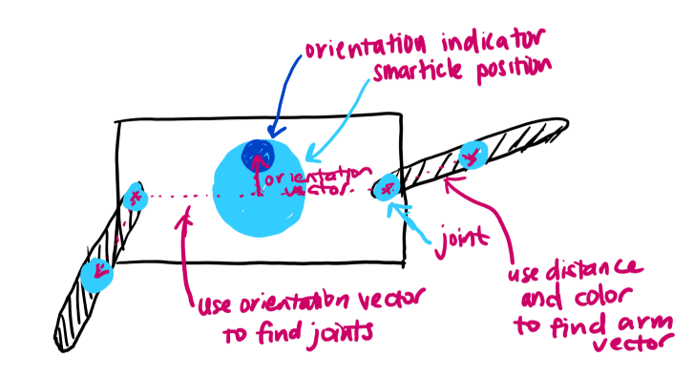 orientation indicator
smarticle position
orientation
vector
joint
use orientation vector
to find joints
use distance
and color
to find arm
vector